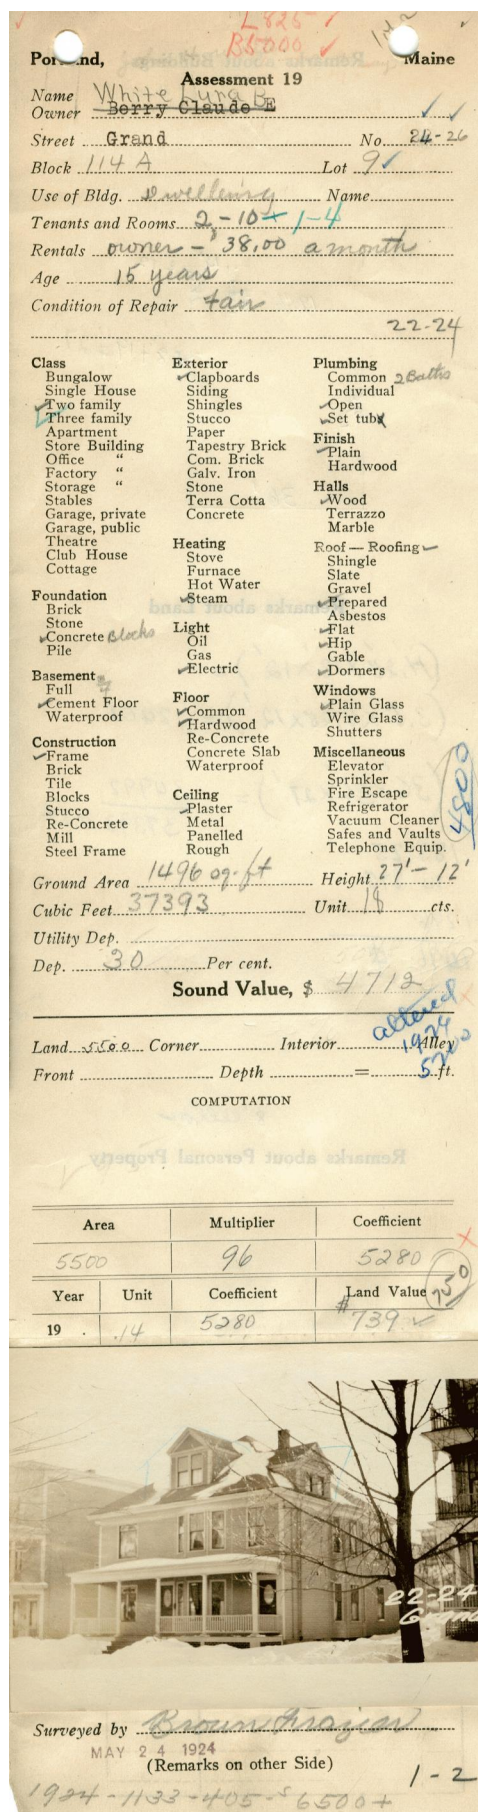 L825 ✓
B5000 ✓
Portland, Maine
Assessment 19
Name White Lura B
Owner Berry Claude E
Street Grand No. 24-26
Block 114 A Lot 9
Use of Bldg. Dwelling Name
Tenants and Rooms 2-10 + 1-4
Rentals owner - $38.00 a month
Age 15 years
Condition of Repair Fair
22-24
Class
Bungalow
Single House
Two family
Three family
Apartment
Store Building
Office "
Factory "
Storage "
Stables
Garage, private
Garage, public
Theatre
Club House
Cottage
Foundation
Brick
Stone
Concrete Blocks
Pile
Basement
Full
Cement Floor
Waterproof
Construction
Frame
Brick
Tile
Blocks
Stucco
Re-Concrete
Mill
Steel Frame
Exterior
Clapboards
Siding
Shingles
Stucco
Paper
Tapestry Brick
Com. Brick
Galv. Iron
Stone
Terra Cotta
Concrete
Heating
Stove
Furnace
Hot Water
Steam
Light
Oil
Gas
Electric
Floor
Common
Hardwood
Re-Concrete
Concrete Slab
Waterproof
Ceiling
Plaster
Metal
Panelled
Rough
Plumbing
Common 2 Baths
Individual
Open
Set tubs
Finish
Plain
Hardwood
Halls
Wood
Terrazzo
Marble
Roof — Roofing
Shingle
Slate
Gravel
Prepared
Asbestos
Flat
Hip
Gable
Dormers
Windows
Plain Glass
Wire Glass
Shutters
Miscellaneous
Elevator
Sprinkler
Fire Escape
Refrigerator
Vacuum Cleaner
Safes and Vaults
Telephone Equip.
4800
Ground Area 1496 sq. ft Height 27' - 12'
Cubic Feet 37393 Unit 18 cts.
Utility Dep.
Dep. 30 Per cent.
Sound Value, $ 4712
altered
1924
5200
Land 5500 Corner Interior Alley
Front Depth = ft.
COMPUTATION
Area Multiplier Coefficient
5500 96 5280
Year Unit Coefficient Land Value 750
19 . .14 5280 $739
22-24
Grand
Surveyed by Brown Frazier
MAY 24 1924
(Remarks on other Side)
1-2
1924-1133-405-$6500+